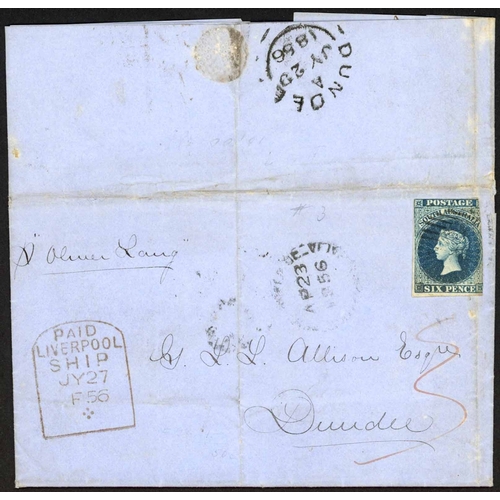 DUNDEE
JY 29
A
1856
POSTAGE
SOUTH AUSTRALIA
SIX PENCE
# 3
p "Oliver Lang"
ADELAIDE
AP 23
1856
PAID
LIVERPOOL
SHIP
JY 27
F 56
G. L. L. Allison Esqre
Dundee